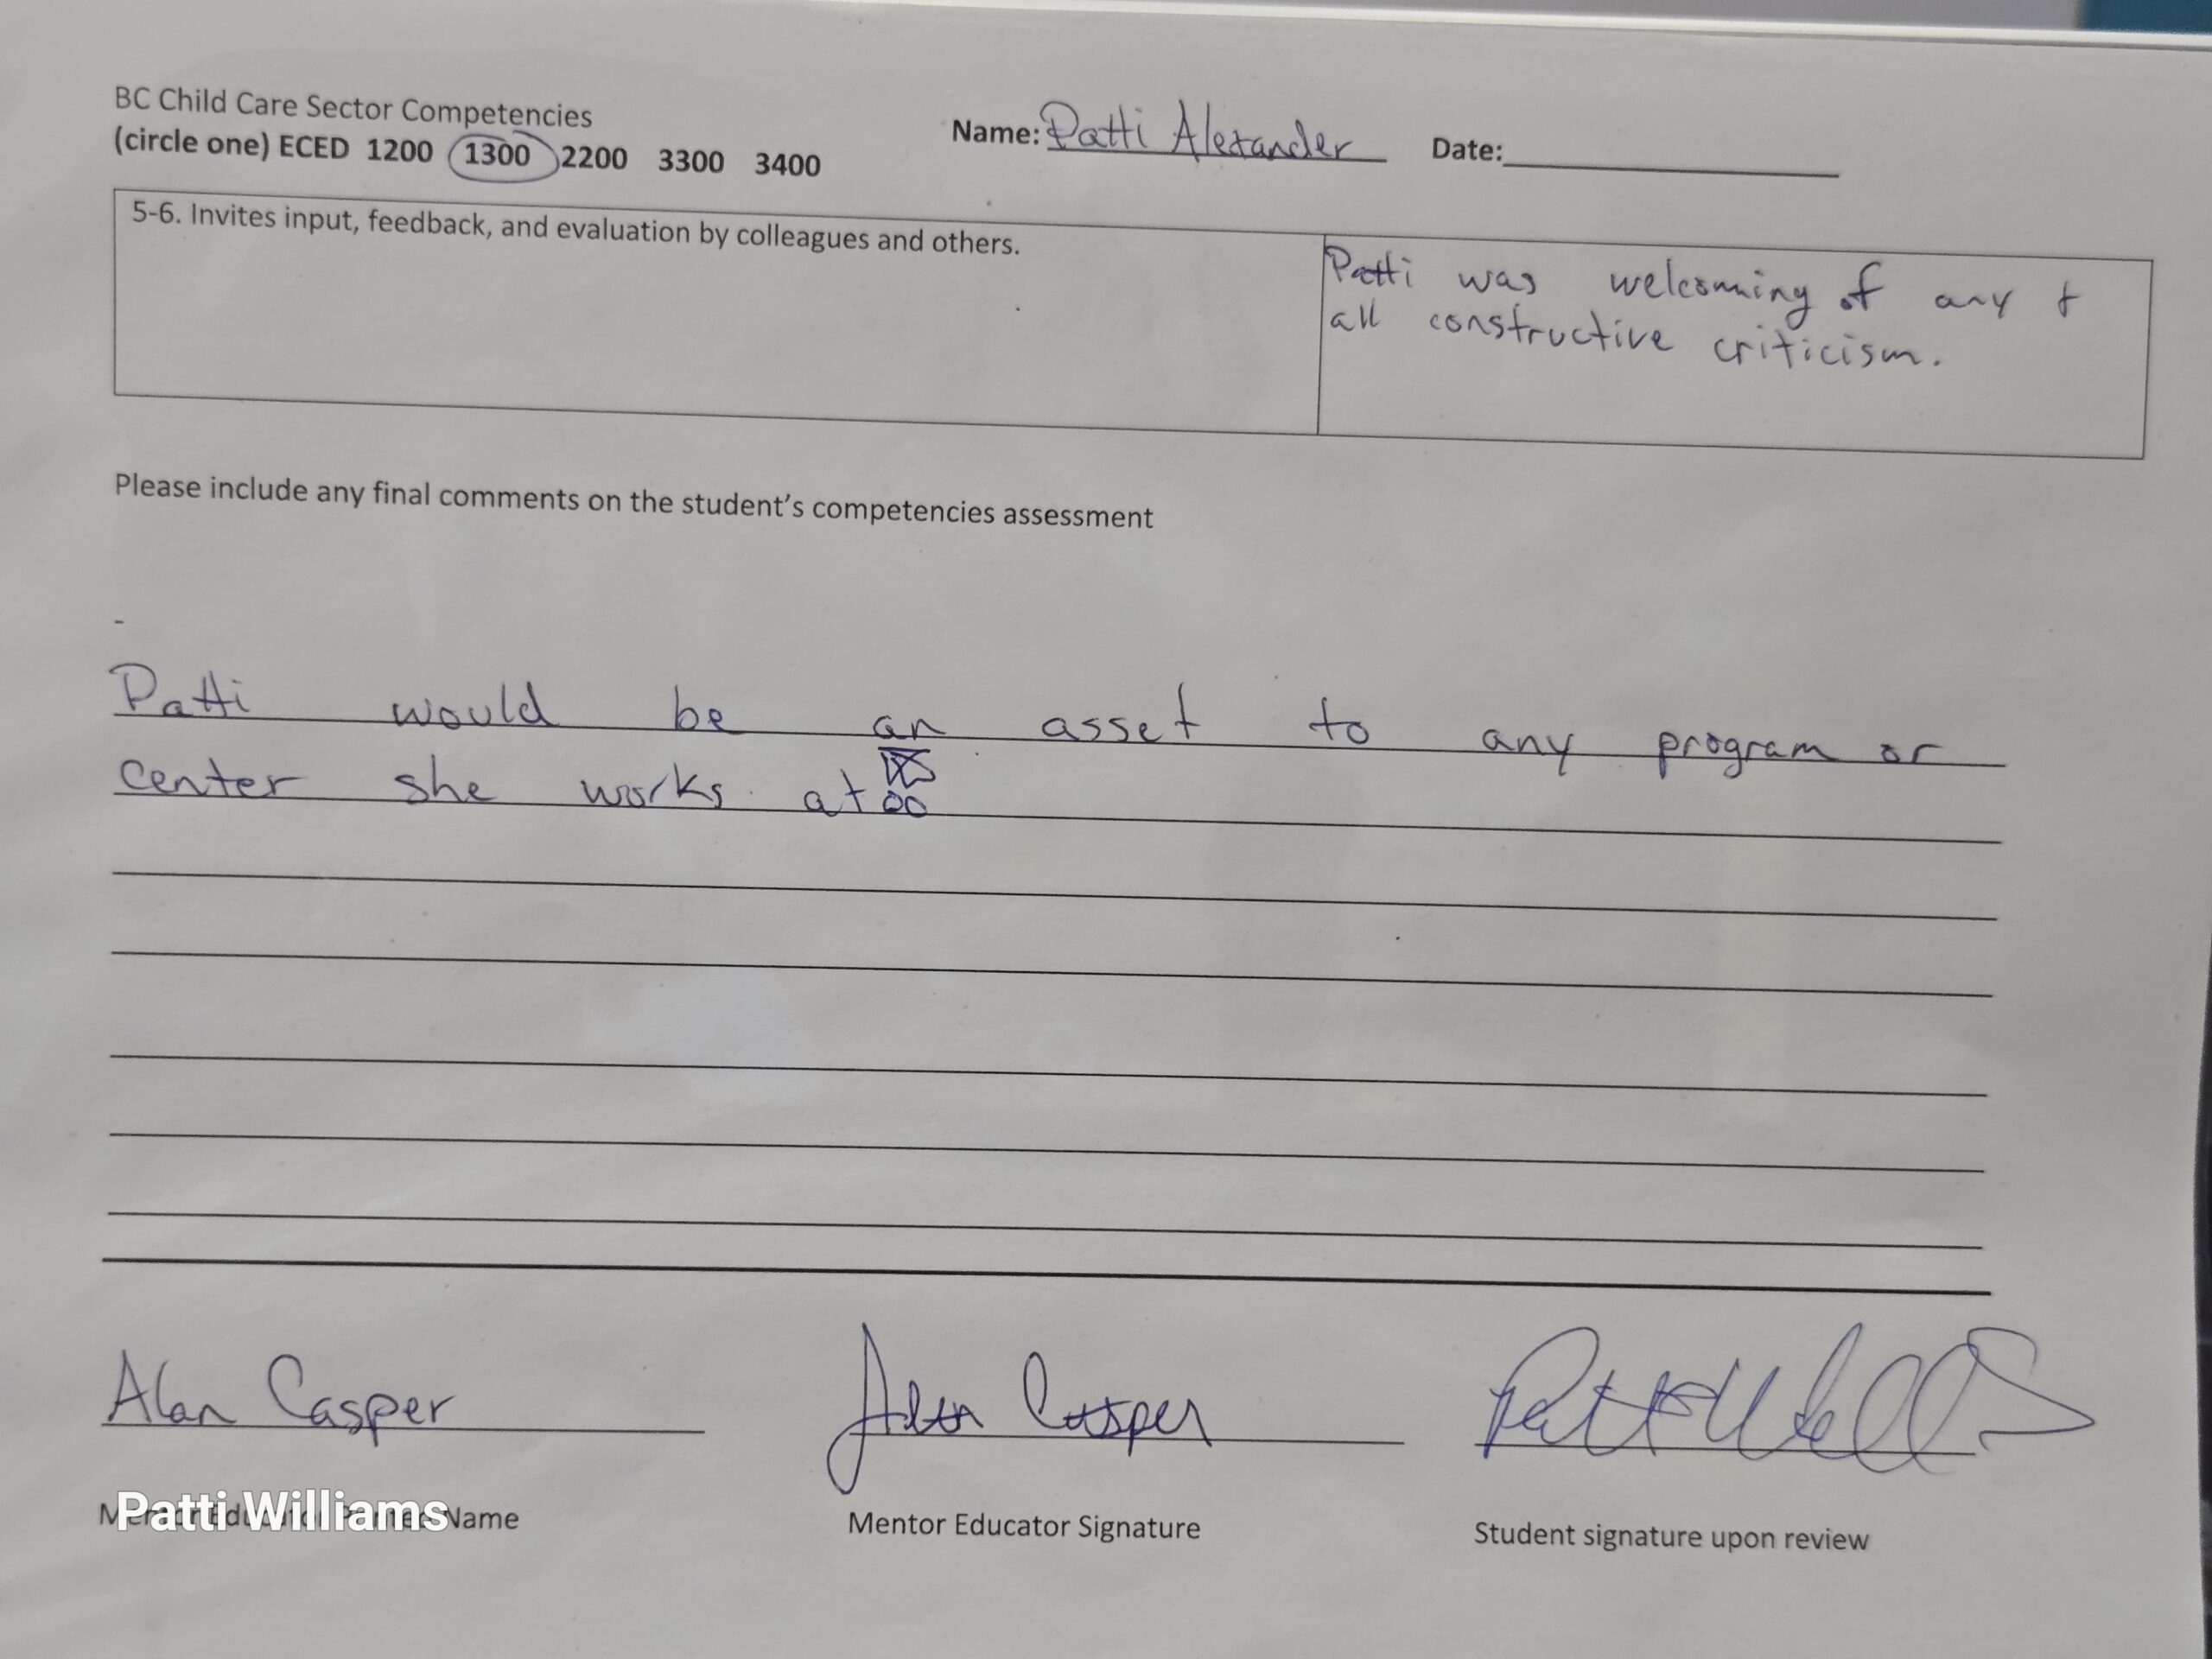 BC Child Care Sector Competencies
(circle one) ECED 1200 1300 2200 3300 3400
Name: Patti Alexander Date:
5-6. Invites input, feedback, and evaluation by colleagues and others.
Patti was welcoming of any +
all constructive criticism.
Please include any final comments on the student's competencies assessment
-
Patti would be an asset to any program or
center she works at
Alan Casper
Alan Casper
Patti Williams
Name
Mentor Educator Signature
Student signature upon review